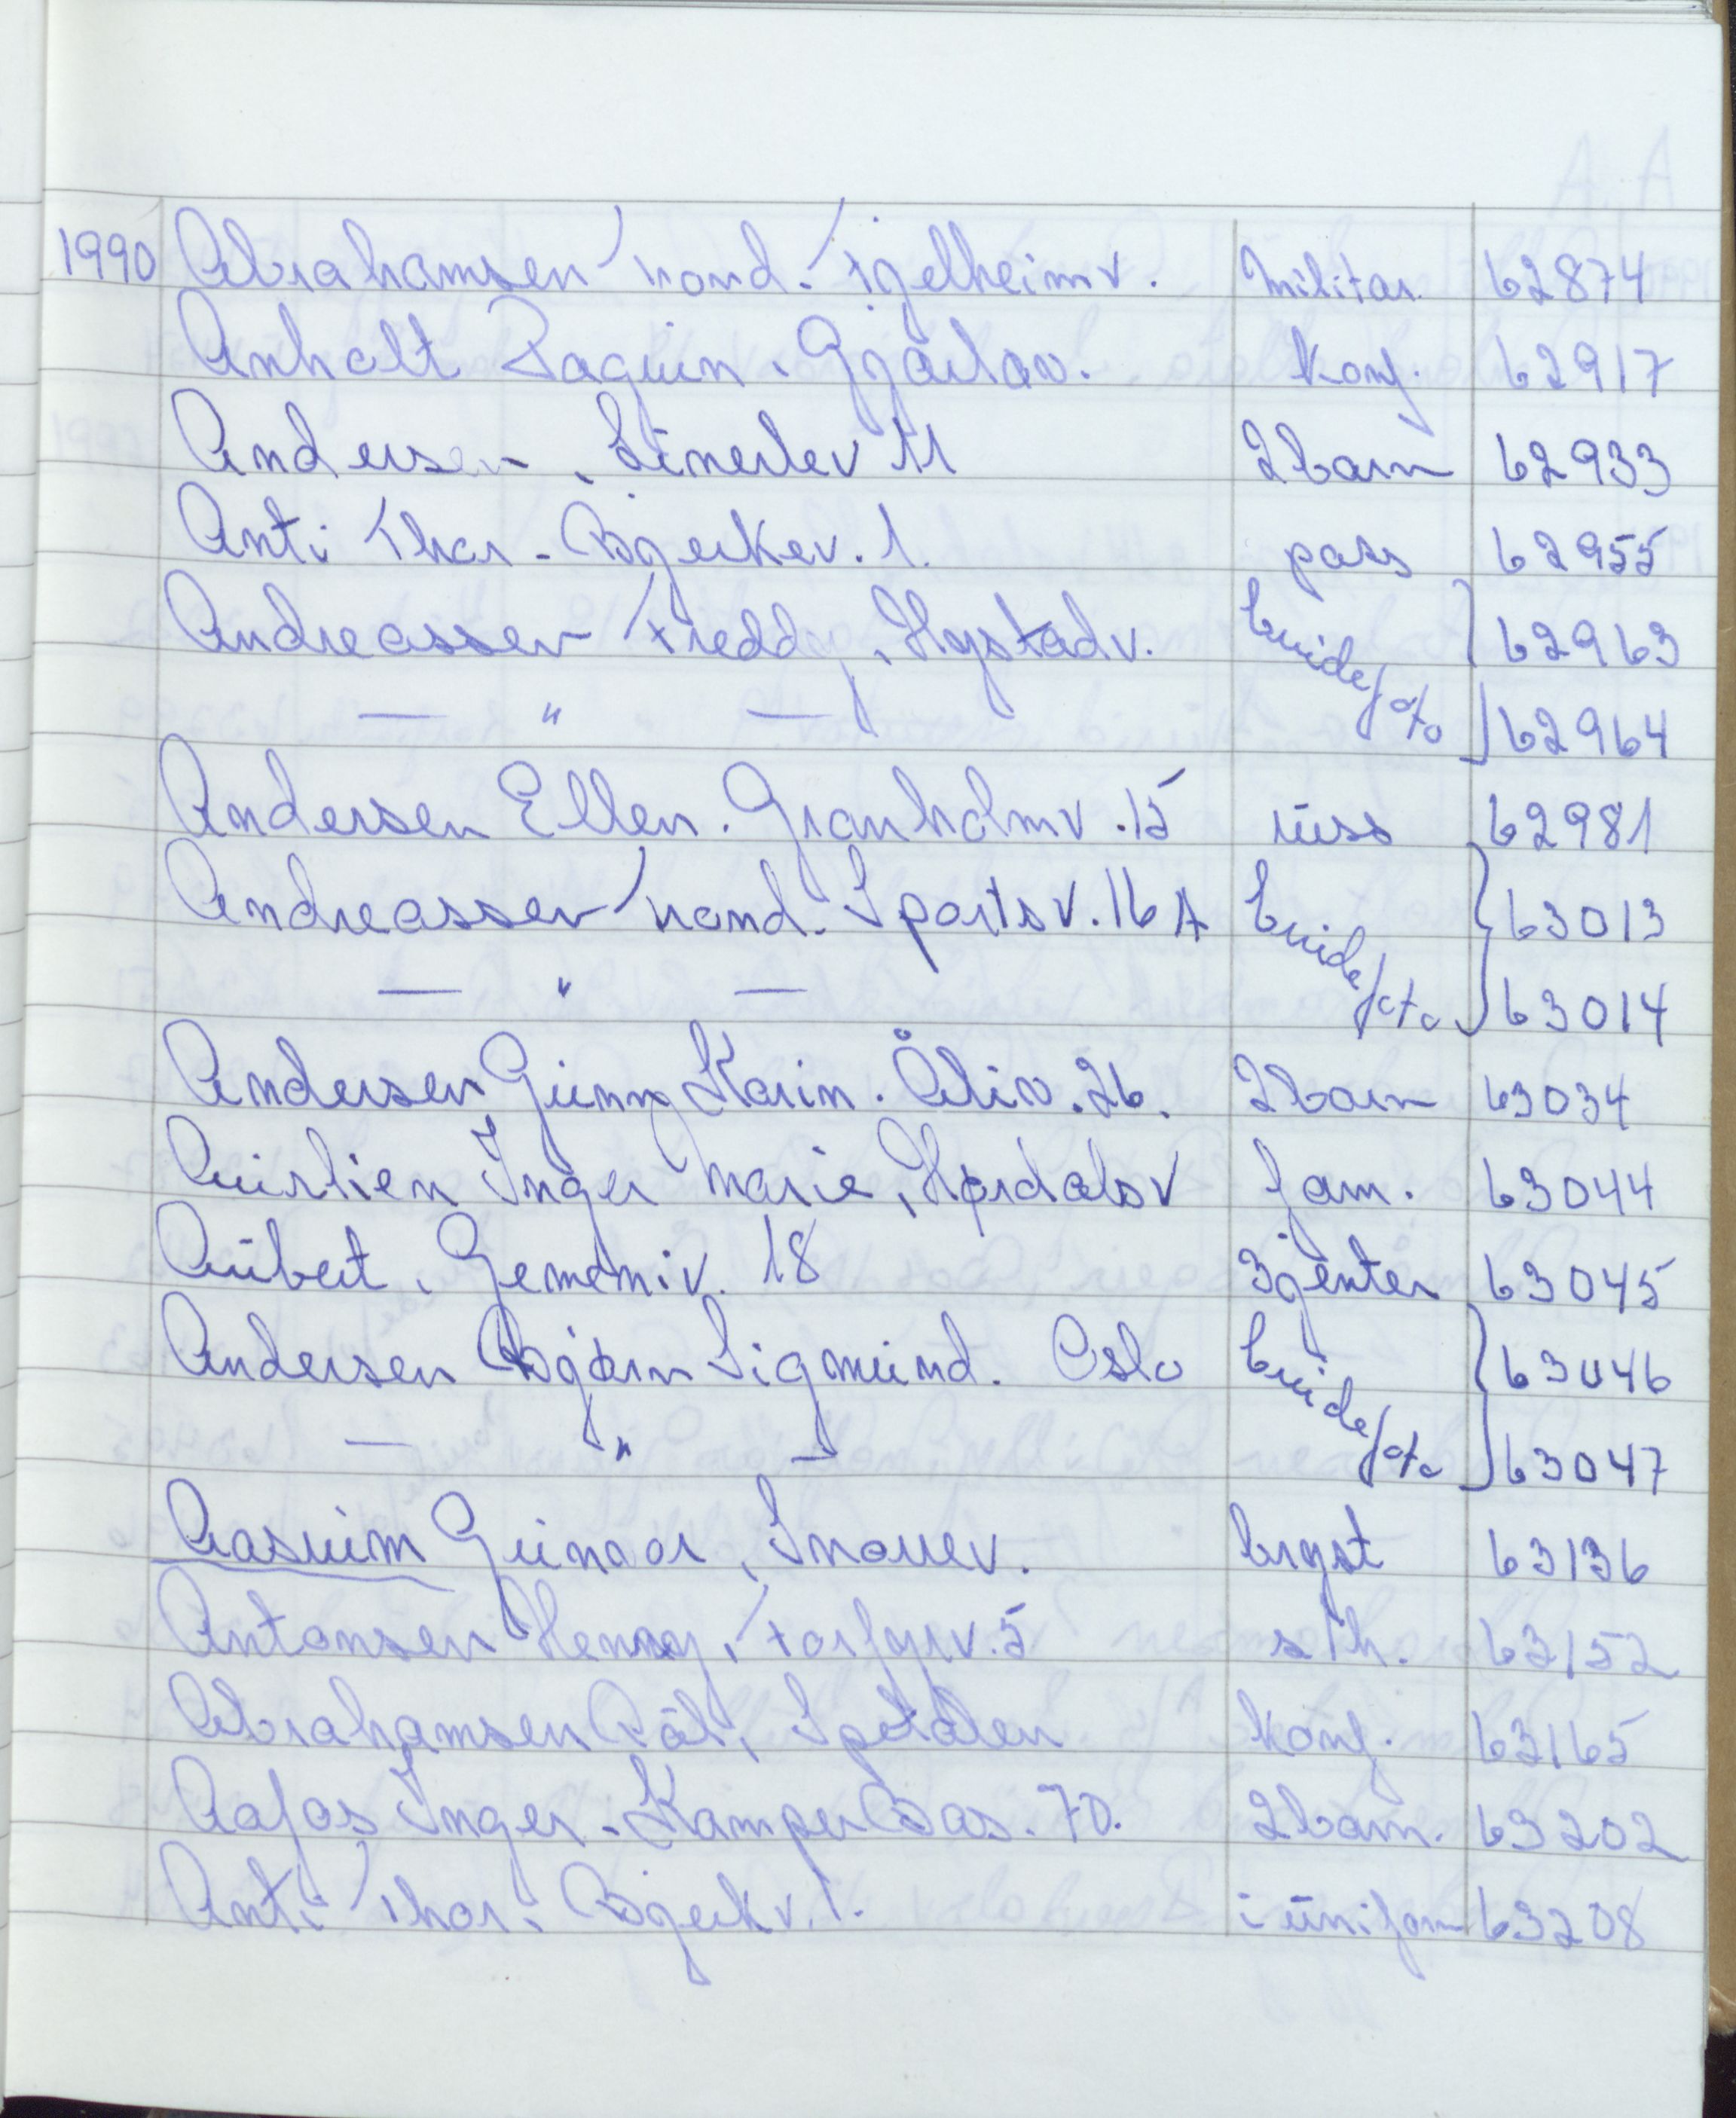 1990 Abrahamsen Trond. Fjellheimv. Militær. 62874
Anholt Joaquin. Gjøslav. Konf. 62917
Andersen, Linerlev 11 2 barn 62933
Anti Thor - Bjerkev. 1. pass 62955
Andreassen Freddy, Hystadv. brudefoto 62963
— " — 62964
Andersen Ellen. Granholmv. 15 russ 62981
Andreassen Trond. Sportsv. 16 A brudefoto 63013
— " — 63014
Andersen Gunn Karin. Åliv. 26. 2 barn 63034
Aurlien Inger Marie, Hørdalsv fam. 63044
Aubert, Gememiv. 18 3 jenter 63045
Andersen Bjørn Sigmund. Oslo brudefoto 63046
— " — 63047
Aasrum Gunnar, Snarrev. bryst 63136
Antonsen Henny, Forfyrv. 5 s/h. 63152
Abrahamsen Pål, Spetalen Konf. 63165
Aafos Inger - Kamperåas. 70. 2 barn. 63202
Anti Thor. Bjerkv. 1. i uniform 63208